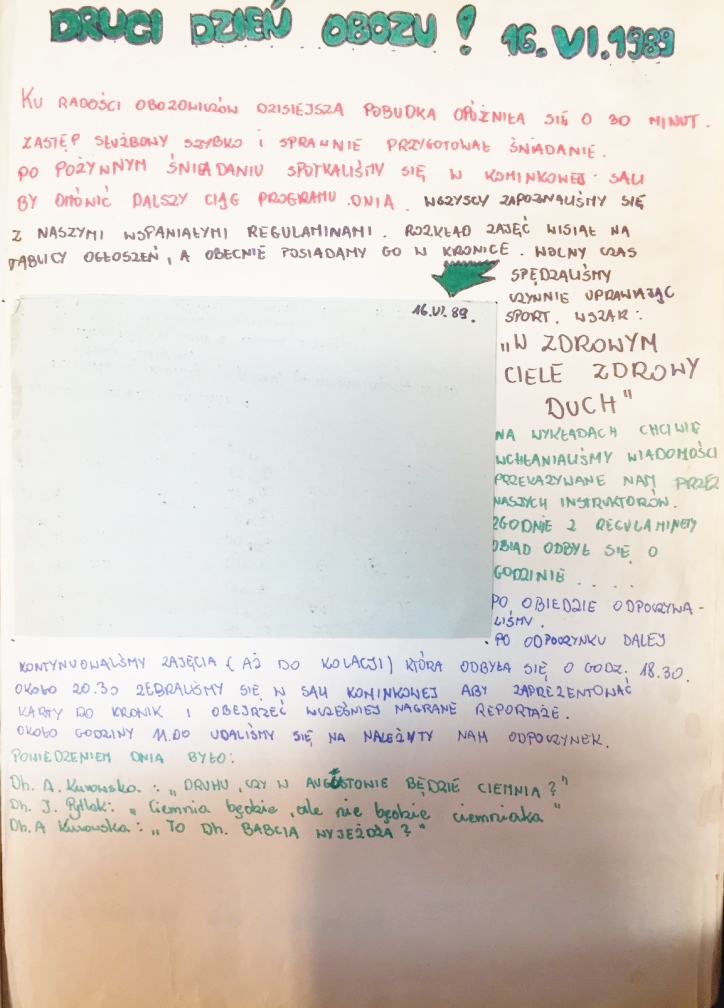 DRUGI DZIEŃ OBOZU! 16.VI.1989
KU RADOŚCI OBOZOWICZÓW DZISIEJSZA POBUDKA OPÓŹNIŁA SIĘ O 30 MINUT.
ZASTĘP SŁUŻBOWY SZYBKO I SPRAWNIE PRZYGOTOWAŁ ŚNIADANIE.
PO POŻYWNYM ŚNIADANIU SPOTKALIŚMY SIĘ W KOMINKOWEJ SALI
BY OMÓWIĆ DALSZY CIĄG PROGRAMU DNIA. WSZYSCY ZAPOZNALIŚMY SIĘ
Z NASZYMI WSPANIAŁYMI REGULAMINAMI. ROZKŁAD ZAJĘĆ WISIAŁ NA
TABLICY OGŁOSZEŃ, A OBECNIE POSIADAMY GO W KRONICE. WOLNY CZAS
SPĘDZALIŚMY
CZYNNIE UPRAWIAJĄC
SPORT. WSZAK:
"W ZDROWYM
CIELE ZDROWY
DUCH"
16.VI.89.
NA WYKŁADACH CHCIWIE
WCHŁANIALIŚMY WIADOMOŚCI
PRZEKAZYWANE NAM PRZEZ
NASZYCH INSTRUKTORÓW.
ZGODNIE Z REGULAMINEM
OBIAD ODBYŁ SIĘ O
GODZINIE .....
PO OBIEDZIE ODPOCZYWA-
LIŚMY.
PO ODPOCZYNKU DALEJ
KONTYNUOWALIŚMY ZAJĘCIA (AŻ DO KOLACJI) KTÓRA ODBYŁA SIĘ O GODZ. 18.30.
OKOŁO 20.30 ZEBRALIŚMY SIĘ W SALI KOMINKOWEJ ABY ZAPREZENTOWAĆ
KARTY DO KRONIK I OBEJRZEĆ WCZEŚNIEJ NAGRANE REPORTAŻE.
OKOŁO GODZINY 11.00 UDALIŚMY SIĘ NA NALEŻYTY NAM ODPOCZYNEK.
POWIEDZENIEM DNIA BYŁO:
Dh. A. Kurowska: "DRUHU, CZY W AUGUSTOWIE BĘDZIE CIEMNIA?"
Dh. J. Pytlak: "Ciemnia będzie, ale nie będzie ciemniaka"
Dh. A Kurowska: "TO Dh. BABCIA WYJEŻDŻA?"